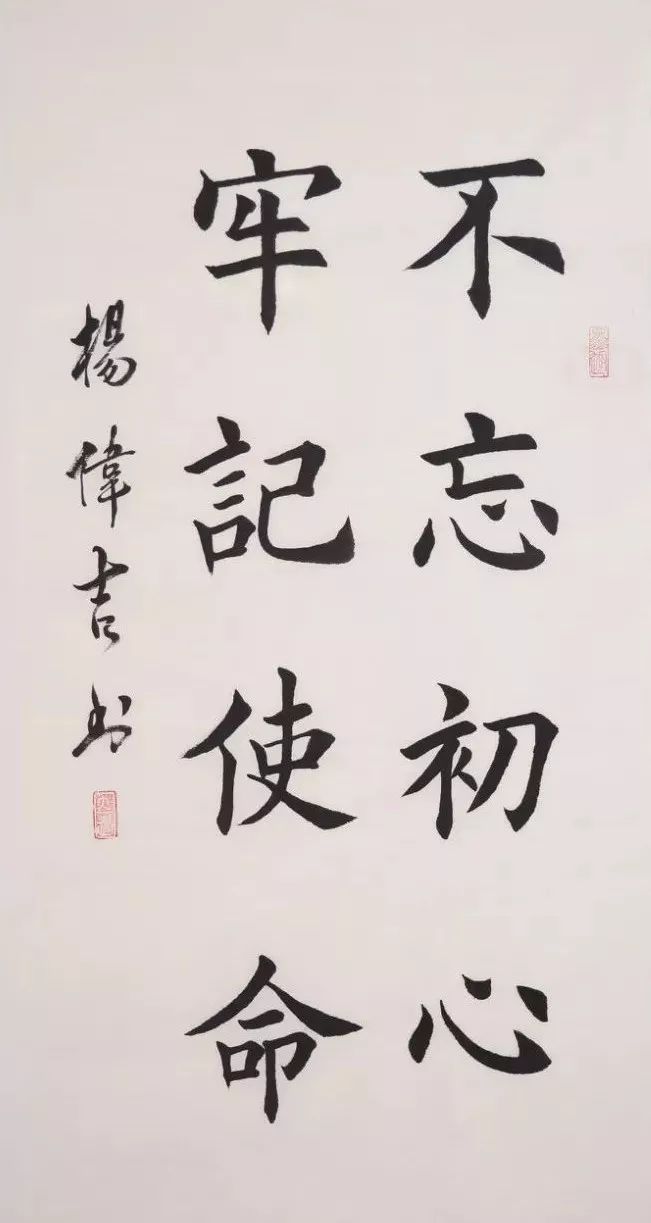 不忘初心
牢記使命
楊偉吉书